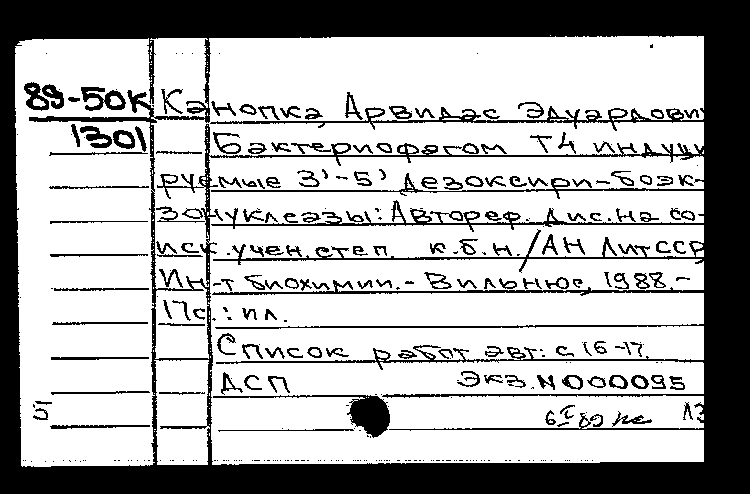 89-50К Канопка, Арвидас Эдуардови
1301 Бактериофагом Т4 индуци
руемые 3'-5' дезоксири-боэк-
зонуклеазы: Автореф. дис. на со-
иск. учен. степ. к.б.н. / АН ЛитССР
Ин-т биохимии. - Вильнюс, 1988. -
17с. : ил.
Список работ авт: с. 16-17.
ДСП Экз. N 000095